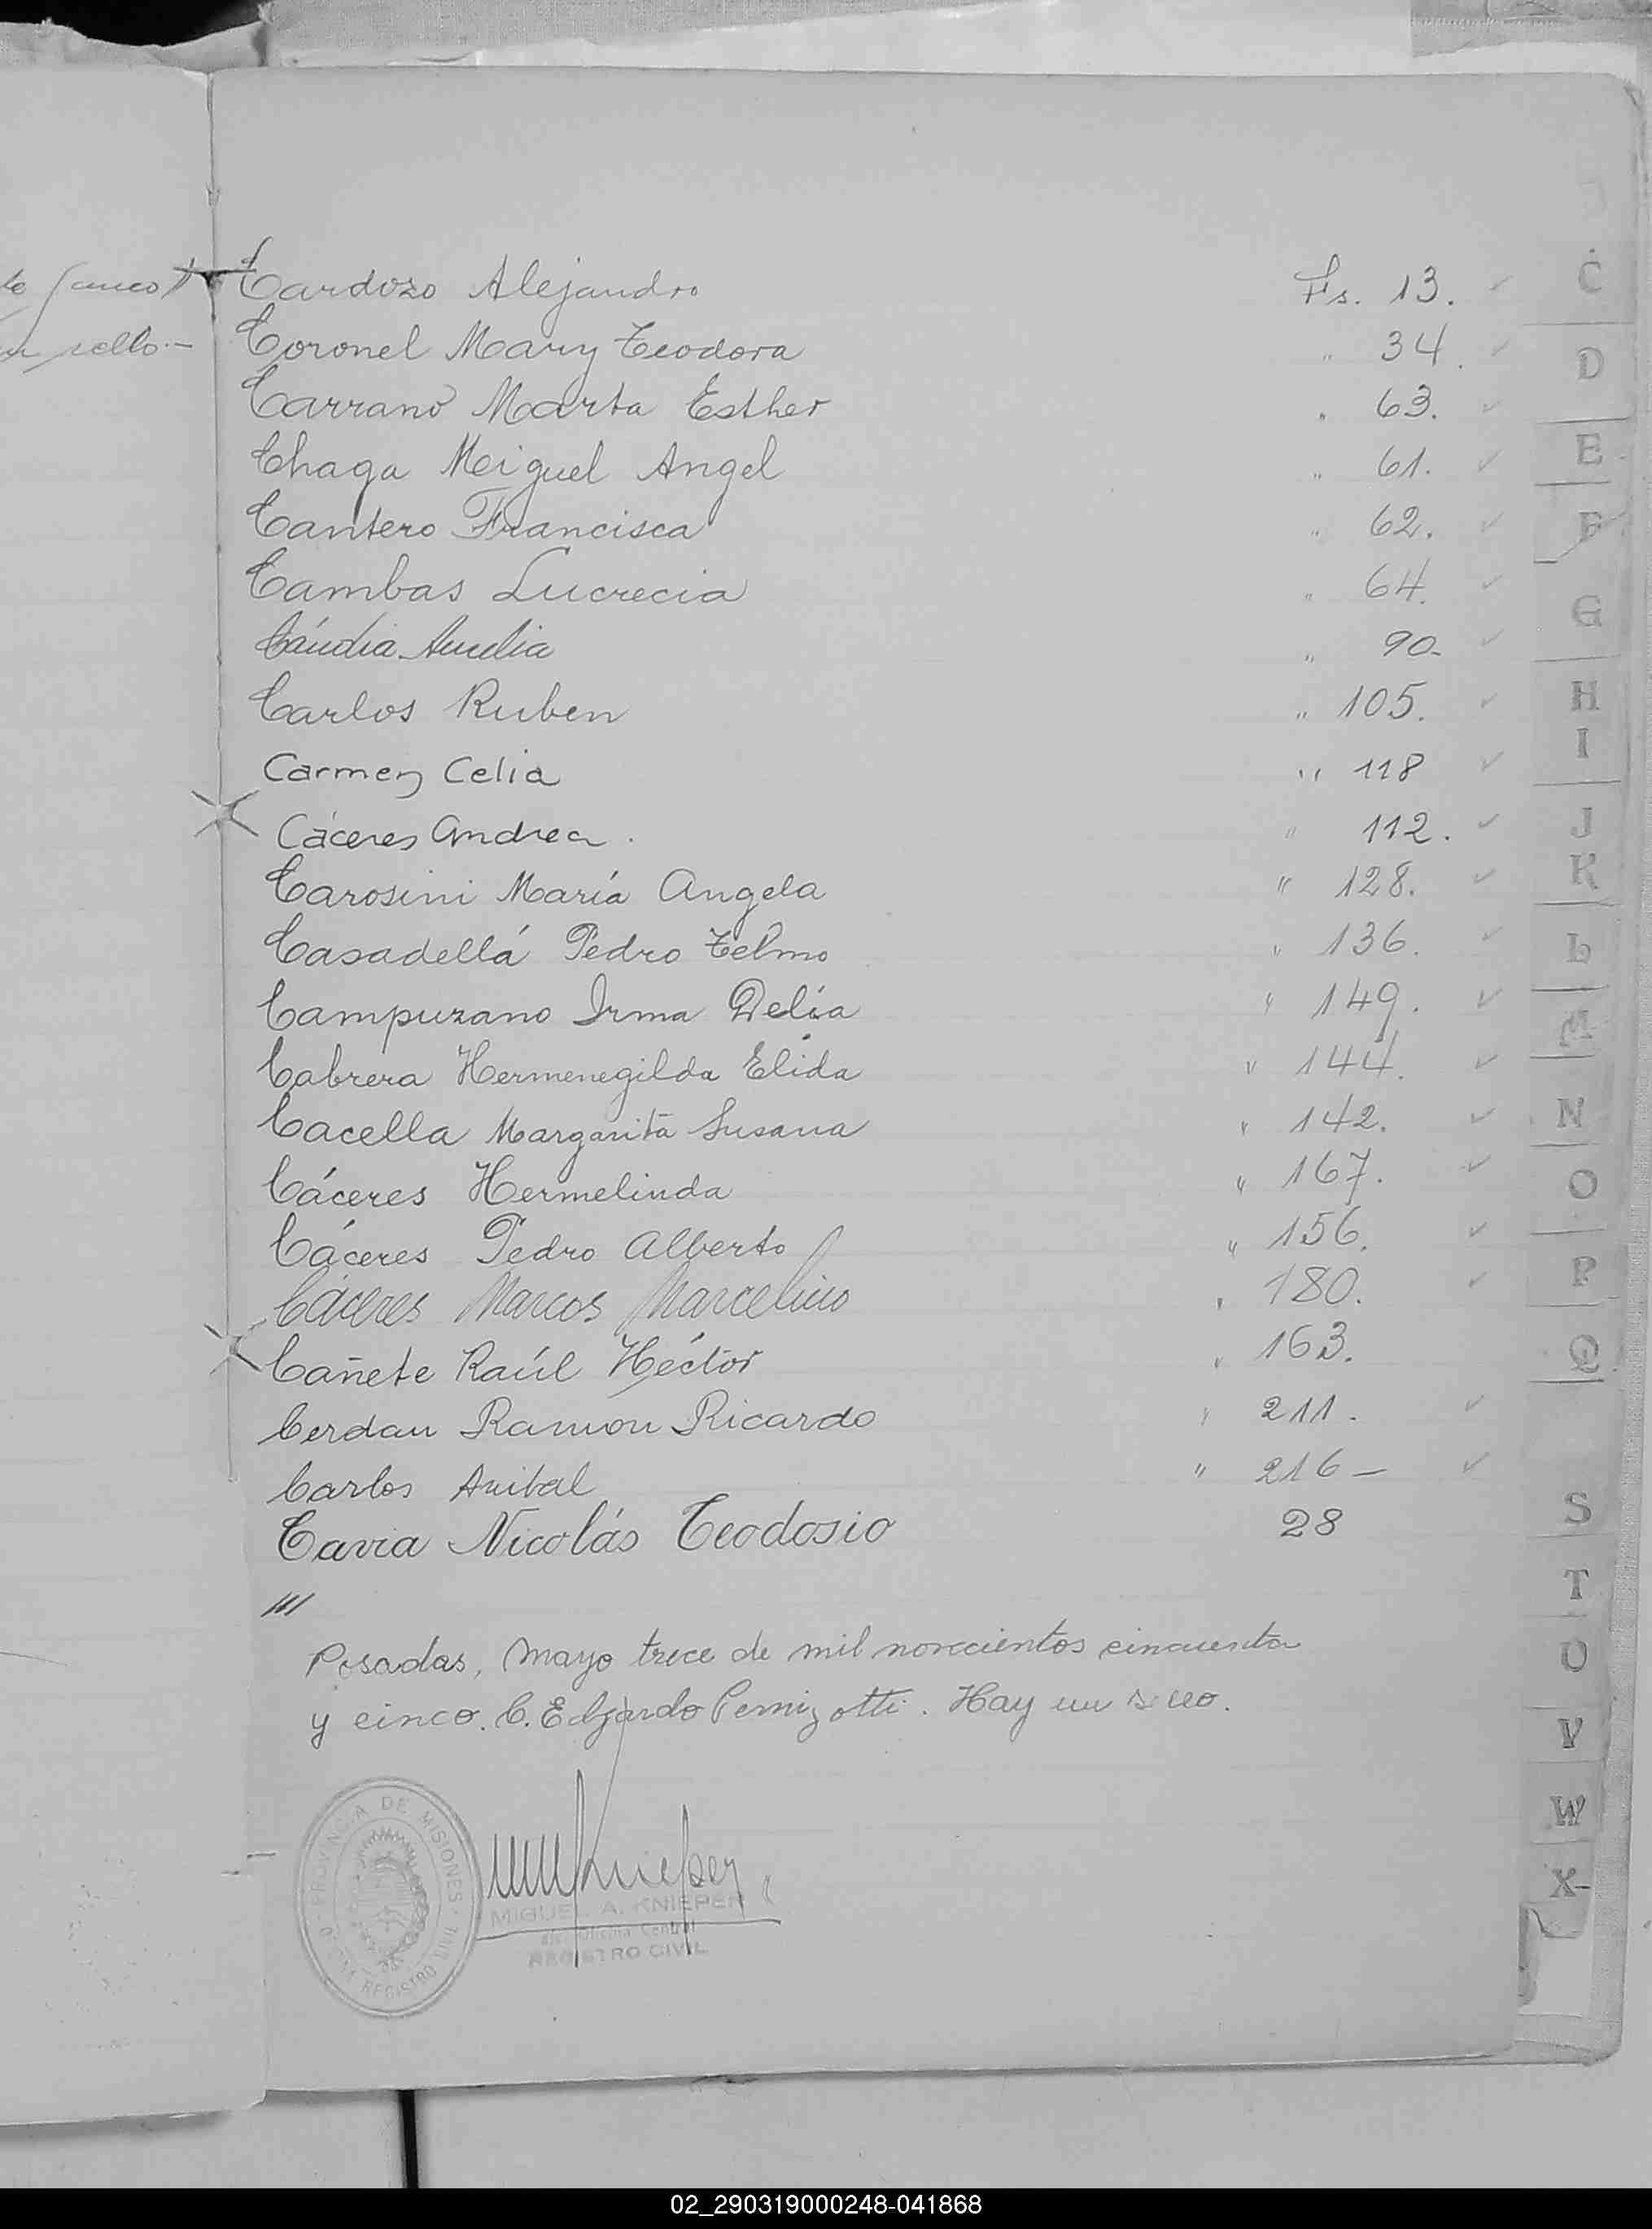 Cardozo Alejandro Fs. 13. ✓
Coronel Mary Teodora " 34. ✓
Carrano Marta Esther " 63. ✓
Chaga Miguel Angel " 61. ✓
Cantero Francisca " 62. ✓
Cambas Lucrecia " 64. ✓
Cáudia Aurelia " 90- ✓
Carlos Ruben " 105. ✓
Carmen Celia " 118 ✓
Cáceres Andrea. " 112. ✓
Carosini María Angela " 128. ✓
Casadellá Pedro Telmo " 136. ✓
Campuzano Irma Delia " 149. ✓
Cabrera Hermenegilda Elida " 144. ✓
Cacella Margarita Susana " 142. ✓
Cáceres Hermelinda " 167. ✓
Cáceres Pedro Alberto " 156. ✓
Cáceres Marcos Marcelino " 180. ✓
Cañete Raúl Héctor " 163.
Cerdan Ramon Ricardo " 211. ✓
Carlos Anibal " 216 – ✓
Cavia Nicolás Teodosio 28
///
Posadas, Mayo trece de mil novecientos cincuenta
y cinco. C. Edgardo Pernizotti. Hay un sello.
PROVINCIA DE MISIONES
REGISTRO
MIGUEL A. KNIEPER
Oficina Central
REGISTRO CIVIL
sello.-
C
D
E
F
G
H
I
J
K
L
M
N
O
P
Q
S
T
U
V
W
X-
02_290319000248-041868